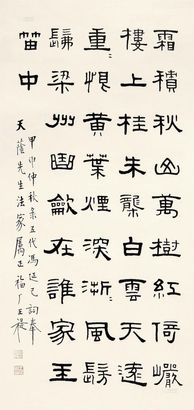 霜積秋山萬樹紅倚巖
樓上挂朱櫳白雲天遠
重〻恨黃葉煙深淅〻風髣
髴梁州曲龡在誰家玉
笛中
甲申仲秋录五代馮延巳詞奉
天蔭先生法家屬正福厂王禔